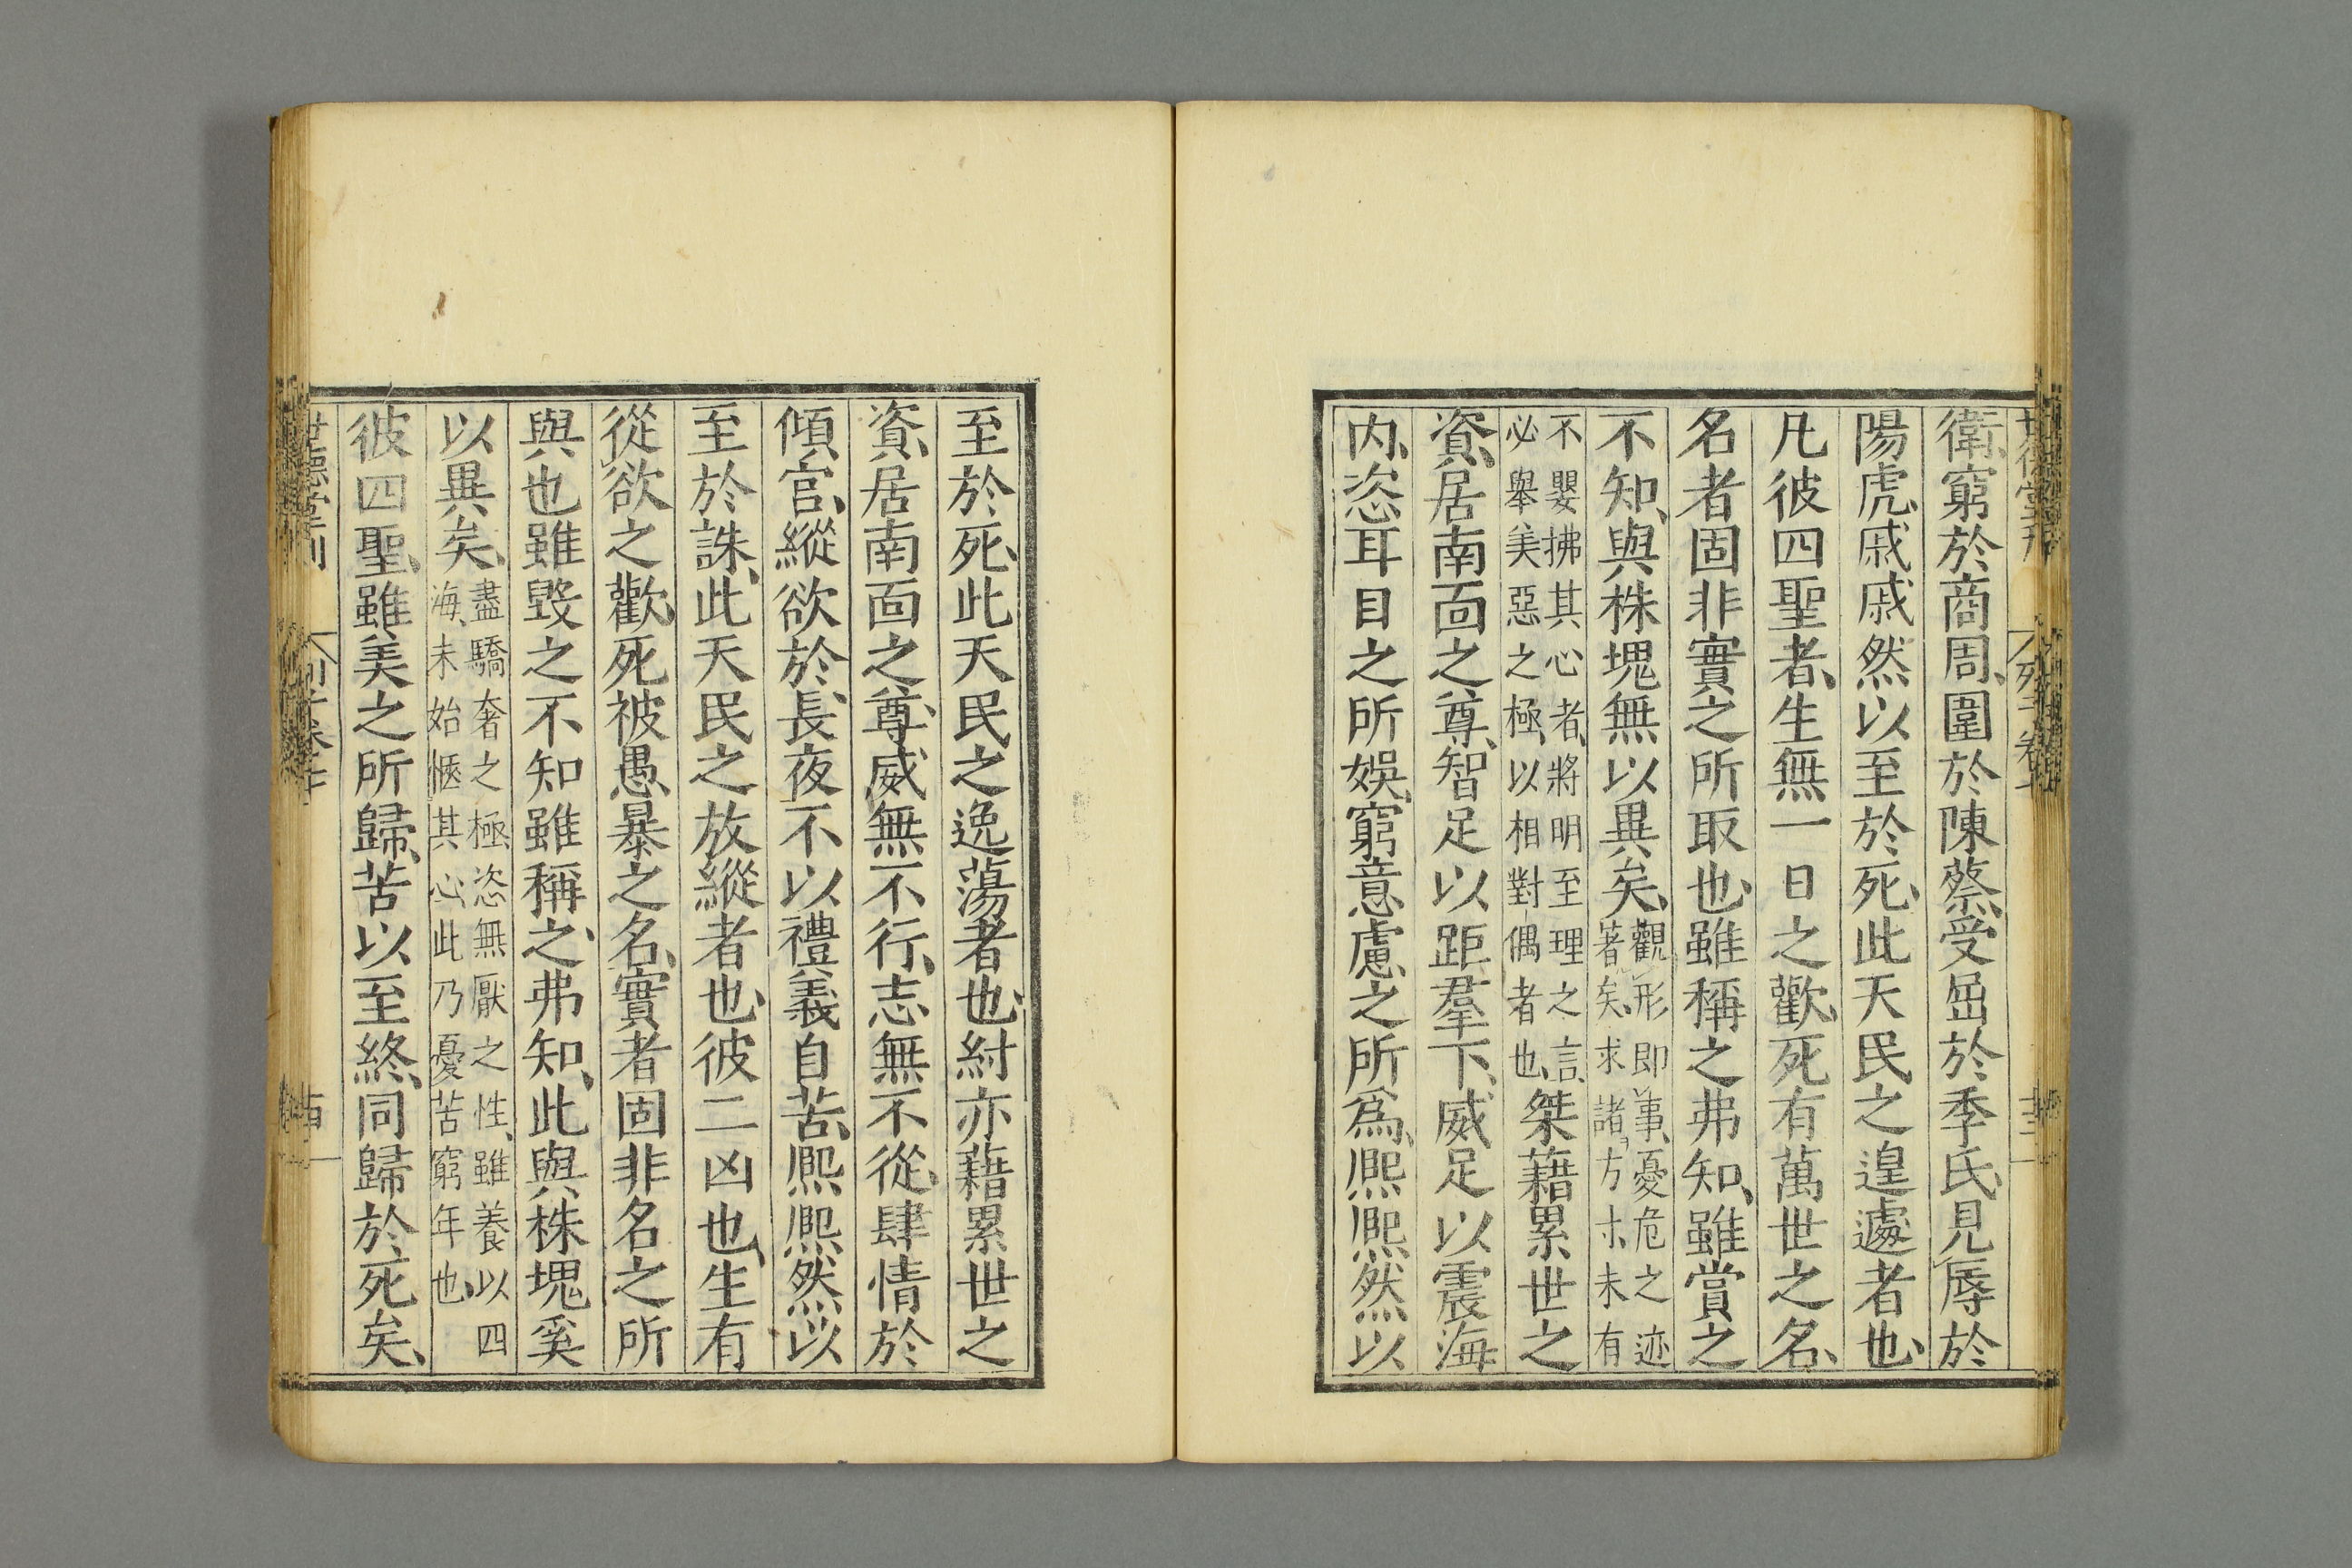 衛、窮於商周、圍於陳蔡、受屈於季氏、見辱於
陽虎、戚戚然以至於死、此天民之遑遽者也、
凡彼四聖者、生無一日之歡、死有萬世之名、
名者固非實之所取也、雖稱之弗知、雖賞之
不知、與株塊無以異矣、
觀形即事、憂危之迹
著矣、求諸方寸未有
不嬰拂其心者、將明至理之言、
必舉美惡之極、以相對偶者也、
桀藉累世之
資、居南面之尊、智足以距羣下、威足以震海
内、恣耳目之所娛、窮意慮之所爲、熙熙然以
至於死、此天民之逸蕩者也、紂亦藉累世之
資、居南面之尊、威無不行、志無不從、肆情於
傾宮、縱欲於、長夜不以禮義自苦、熙熙然以
至於誅、此天民之放縱者也、彼二凶也、生有
從欲之歡、死被愚暴之名、實者固非名之所
與也雖毀之不知雖稱之、弗知、此與株塊奚
以異矣、
盡驕奢之極、恣無厭之性、雖養以四
海、未始愜其心此乃憂苦窮年也、
彼四聖、雖美之所歸、苦以至終、同歸於死矣、
世德堂刊
列子卷七